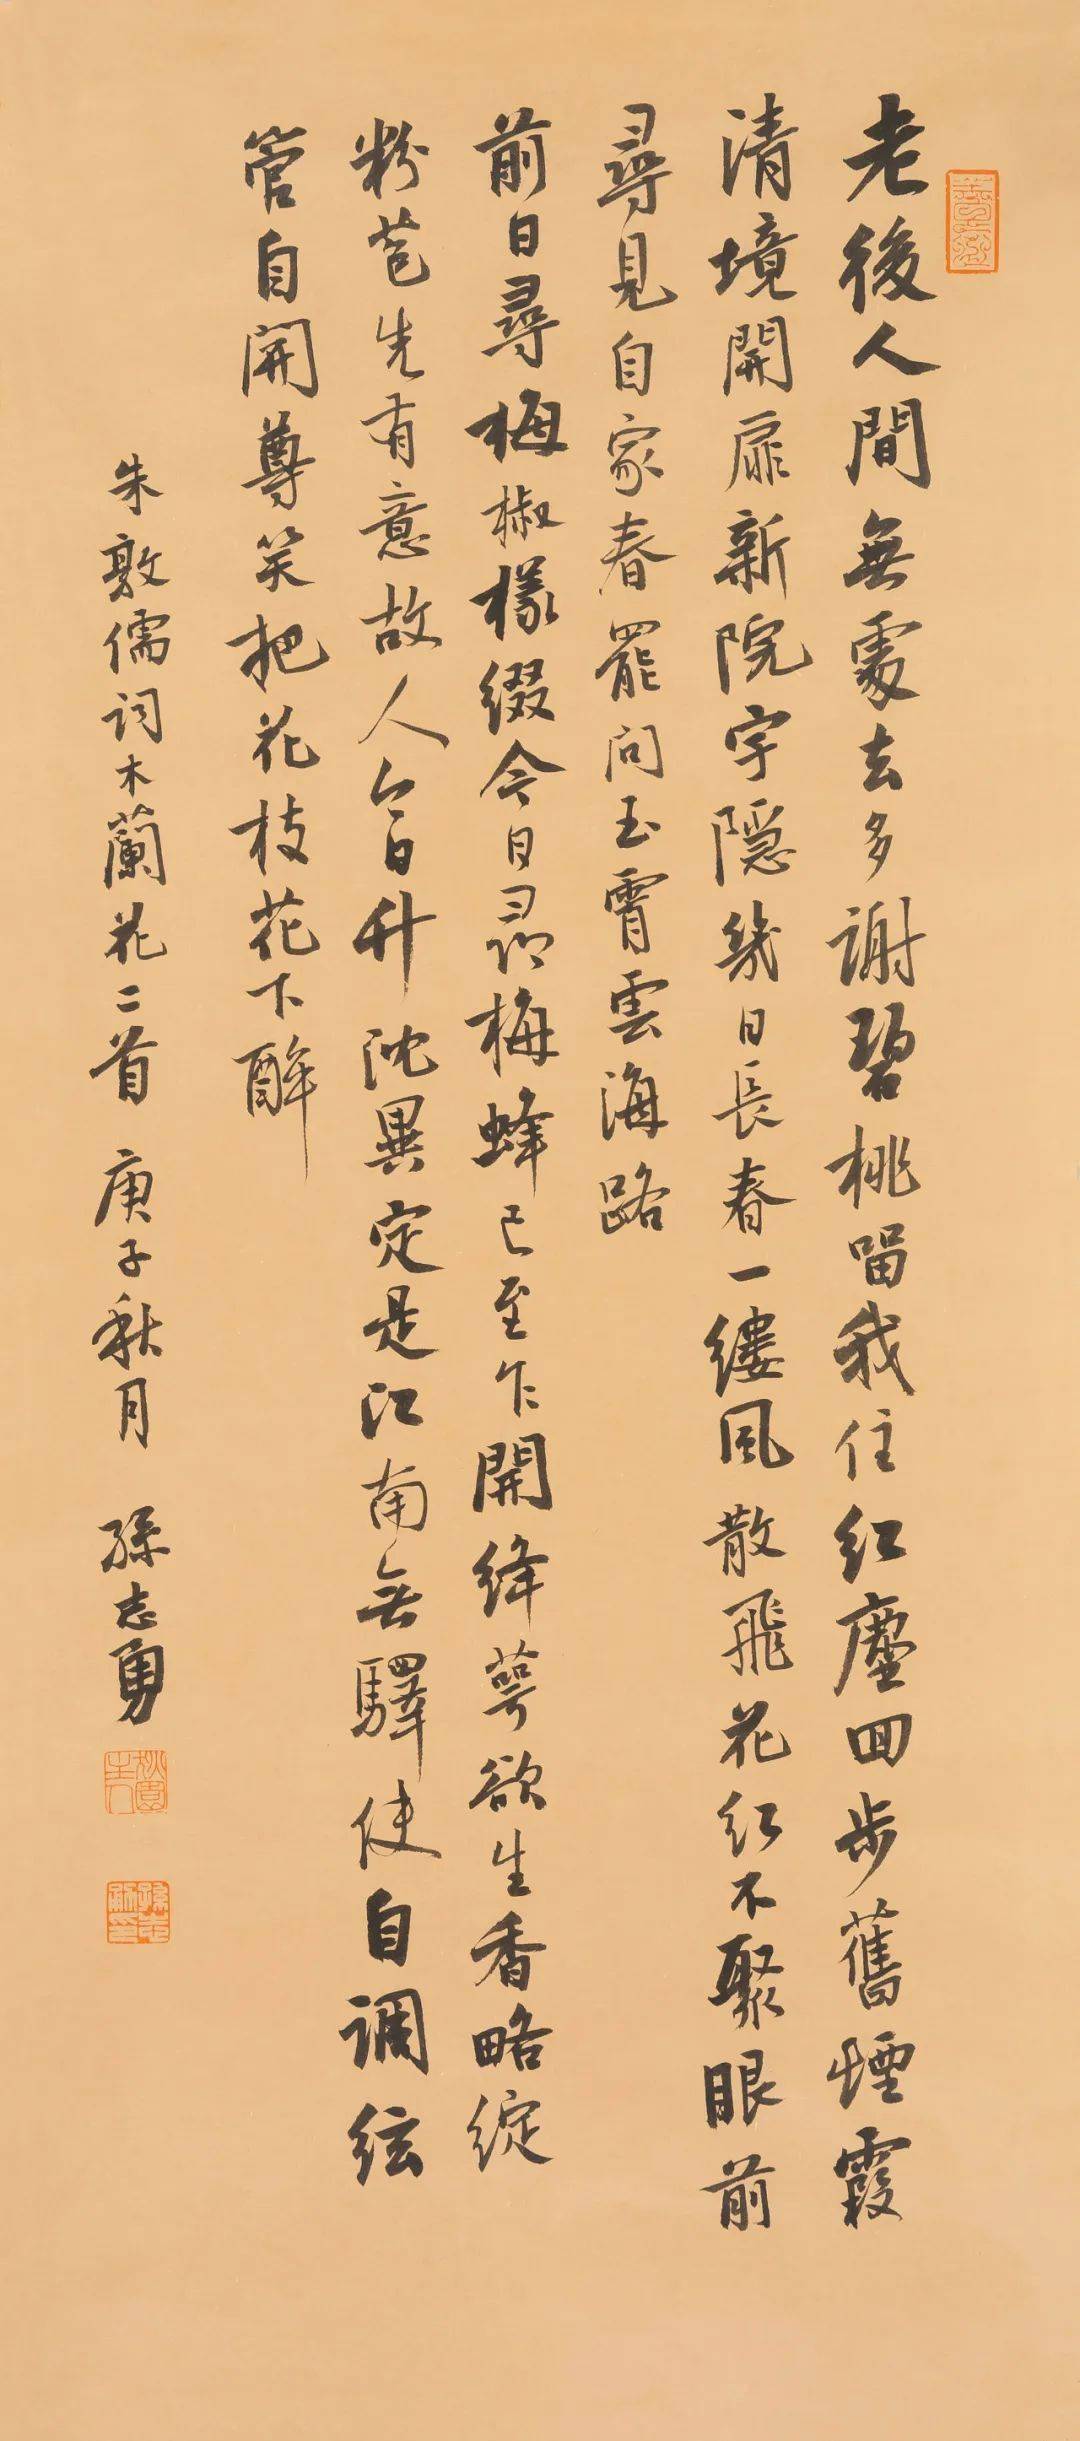 老後人間無處去多謝碧桃留我住紅塵回步舊煙霞
清境開扉新院宇隱幾日長春一縷風散飛花紅不聚眼前
尋見自家春罷問玉霄雲海路
前日尋梅椒樣綴今日尋梅蜂已至乍開絳萼欲生香略綻
粉苞先有意故人今日升沈異定是江南無驛使自調絃
管自開尊笑把花枝花下醉
朱敦儒詞木蘭花二首 庚子秋月 孫志勇